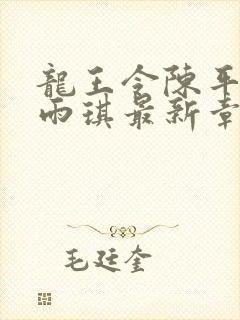 龍王令陳平
雨琪最新章
毛廷奎